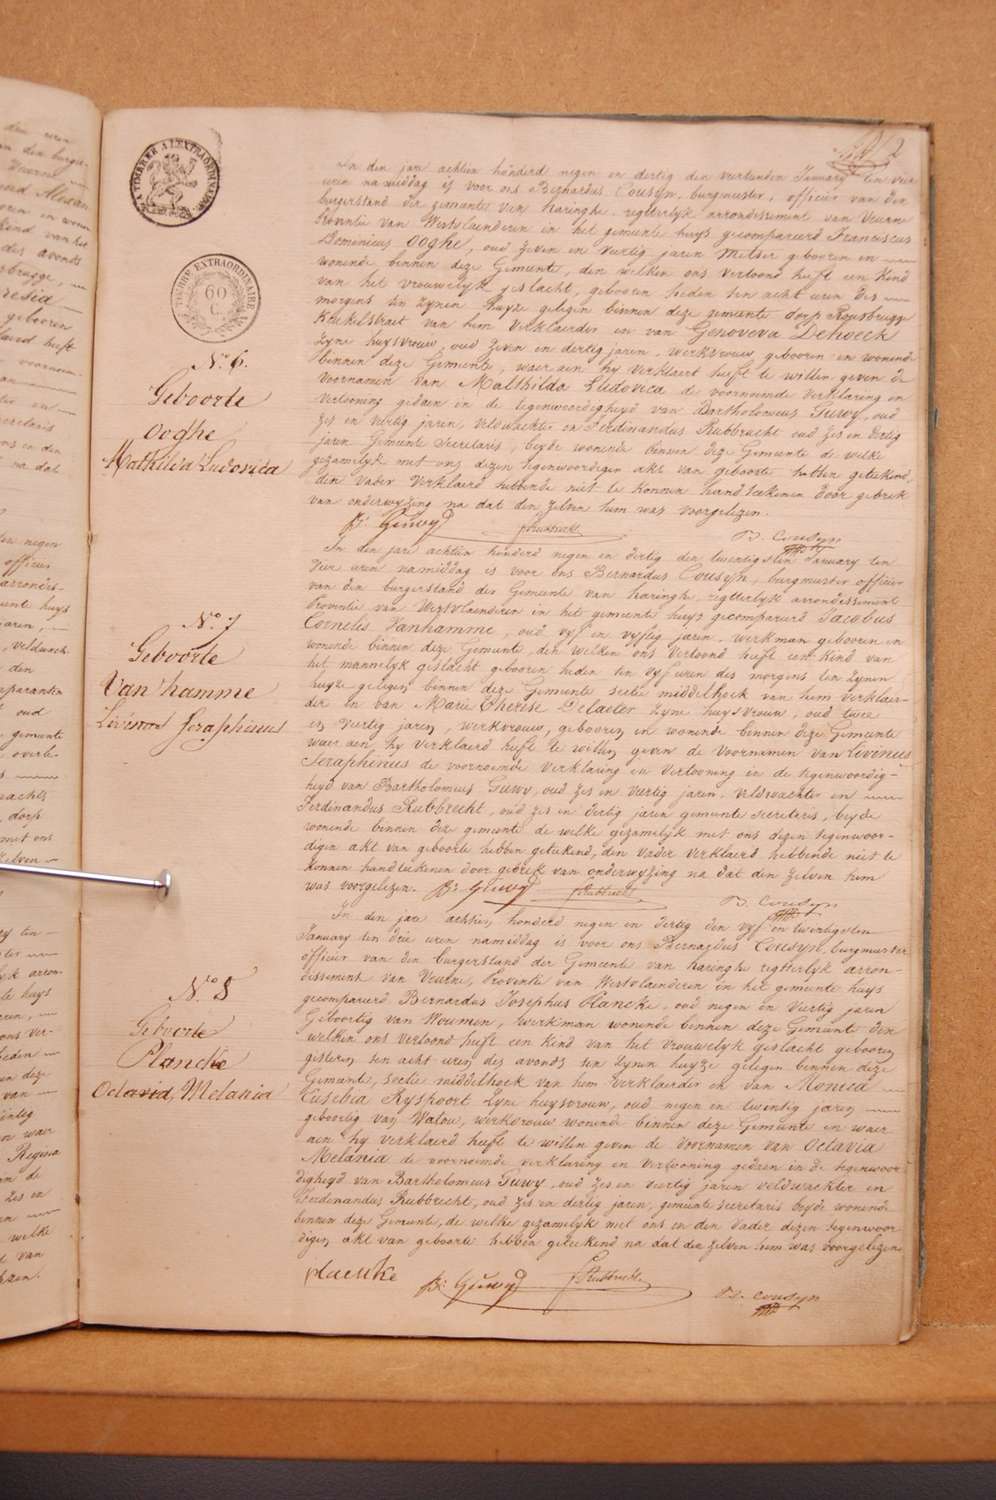 TIMBRE A L'EXTRAORDINAIRE
TIMBRE EXTRAORDINAIRE
60
C.
No 6.
Geboorte
Ooghe
Mathilda Ludovica
In den jare achtien honderd negen en dertig den January ten vier
uren namiddag is voor ons Bernardus Cousyn, burgmeester, officier van den
burgerstand der gemeente van Haringhe, regtterlyk arrondissement van Veurne
Provintie van Westvlaenderen in het gemeente huys gecompareerd Franciscus
Dominicus Ooghe, oud zeven en veertig jaren Metser gebooren en
wonende binnen deze Gemeente, den welken ons vertoond heeft een kind
van het vrouwelyk geslacht, gebooren heden ten acht uren des
morgens in zynen huyze gelegen binnen deze gemeente dorp Rousbrugge
van hem verklaerder en van Genoveva Dehoeck
zyne huysvrouw, oud zeven en dertig jaren, werkvrouw, gebooren en wonende
binnen deze Gemeente, waer aen hy verklaert heeft te willen geven de
voornamen van Mathilda Ludovica de voornoemde verklaring en
vertooning gedaen in de tegenwoordigheyd van Bartholomeus Guwy, oud
zes en veertig jaren, veldwachter en Ferdinandus Rubbrecht oud zes en dertig
jaren Gemeente Secretaris, beyde wonende binnen deze Gemeente de welke
gezamelyk met ons dezen tegenwoordigen akt van geboorte hebben geteekend,
den vader verklaerd hebbende niet te konnen handteekenen door gebrek
van onderwyzing na dat den zelven hem was voorgelezen.
B: Guwy F Rubbrecht B. Cousyn
No 7
Geboorte
Van hamme
Livinus Seraphinus
In den jare achtien honderd negen en dertig den twentigsten January ten
vier uren namiddag is voor ons Bernardus Cousyn, burgmeester officier
van den burgerstand der Gemeente van Haringhe regtterlyk arrondissement
Provintie van Westvlaenderen in het gemeente huys gecompareerd Jacobus
Cornelis Vanhamme, oud vyf en vyftig jaren, werkman gebooren en
wonende binnen deze Gemeente, den welken ons vertoond heeft een kind van
het mannelyk geslacht gebooren heden ten vyf uren des morgens ten zynen
huyze gelegen binnen deze Gemeente sectie middelhoek van hem verklaer-
der en van Marie Therese Delaeter zyne huysvrouw, oud twee
en veertig jaren, werkvrouw, gebooren en wonende binnen deze Gemeente
waer aen hy verklaerd heeft te willen geven de voornamen van Livinus
Seraphinus de voornoemde verklaring en vertooning in de tegenwoordig-
heyd van Bartholomeus Guwy, oud zes en veertig jaren, veldwachter en
Ferdinandus Rubbrecht, oud zes en dertig jaren gemeente secretaris, beyde
wonende binnen deze gemeente de welke gezamelyk met ons dezen tegenwoor-
digen akt van geboorte hebben geteekend, den vader verklaerd hebbende niet te
konnen handteekenen door gebrek van onderwyzing na dat den zelven hem
was voorgelezen. B: Guwy F Rubbrecht B. Cousyn
No 8
Geboorte
Plancke
Octavia, Melania
In den jare achtien honderd negen en dertig den vyf en twentigsten
January ten drie uren namiddag is voor ons Bernardus Cousyn, burgmeester
officier van den burgerstand der Gemeente van haringhe regtterlyk arron-
dissement van Veurne, Provintie van Westvlaenderen in het gemeente huys
gecompareerd Bernardus Josephus Plancke, oud negen en veertig jaren
Geboortig van Woumen, werkman wonende binnen deze Gemeente den
welken ons vertoond heeft een kind van het vrouwelyk geslacht gebooren
gisteren ten acht uren des avonds ten zynen huyze gelegen binnen deze
Gemeente, sectie middelhoek van hem verklaerder en van Monica
Eusebia Ryspoort zyne huysvrouw, oud negen en twintig jaren
geboortig van Watou, werkvrouw wonende binnen deze Gemeente en waer
aen hy verklaerd heeft te willen geven de voornamen van Octavia
Melania de voornoemde verklaring en vertooning gedaen in de tegenwoor
digheyd van Bartholomeus Guwy, oud zes en veertig jaren veldwachter en
Ferdinandus Rubbrecht, oud zes en dertig jaren, gemeente secretaris beyde wonende
binnen deze Gemeente, de welke gezamelyk met ons en den vader dezen tegenwoor
digen akt van geboorte hebben geteekend na dat die zelven hem was voorgelezen
plancke B: Guwy F Rubbrecht B. Cousyn